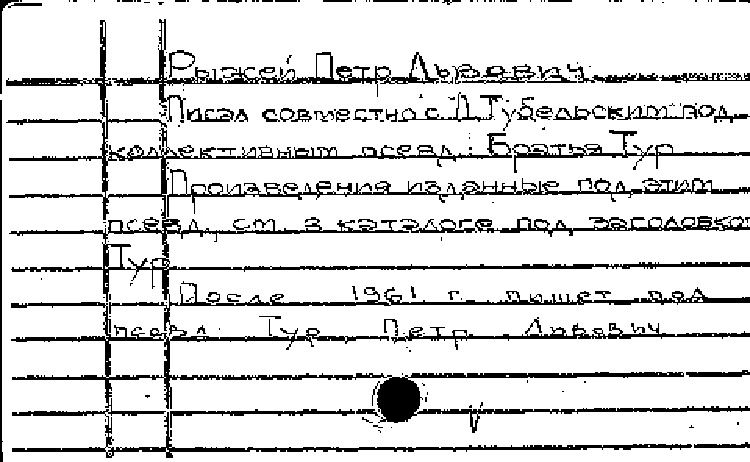 Рыжей Петр Львович
Писал совместно с Л. Тубельским под
коллективным псевд.: Братья Тур
Произведения изданные под этим
псевд. см. в каталоге под заголовком
Тур
После 1961 г. пишет под
псевд. Тур Петр Львович